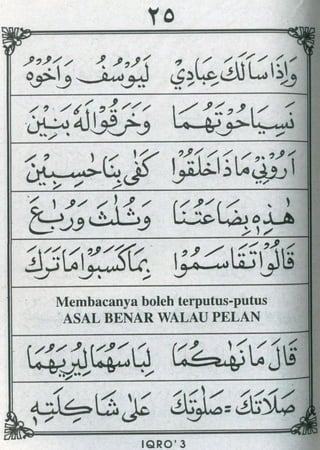 ٢٥
وَاِذَاسَاَلَكَ عِبَادِيْ لَيُوْسُفُ وَاَخُوْهُ
نَسِيَاحُوْتَهُمَا وَخَرَقُوْالَهٗ بَنِيْنَ
اَرُوْنِيْ مَاذَاخَلَقُوْا كَفٰى بِنَاحٰسِبِيْنَ
هٰذِهٖ بِضَاعَتُنَا وَثُلٰثَ وَرُبٰعَ
قَالُوْاتَقَاسَمُوْا بِمَاكَسَبُوْامَاتَرَكَ
Membacanya boleh terputus-putus
ASAL BENAR WALAU PELAN
قَالَ مَانَهٰىكُمَا لِبَاسَهُمَالِيُرِيَهُمَا
صَلَاتَكَ = صَلٰوتَكَ عَلٰى شَاكِلَتِهٖ
IQRO'3